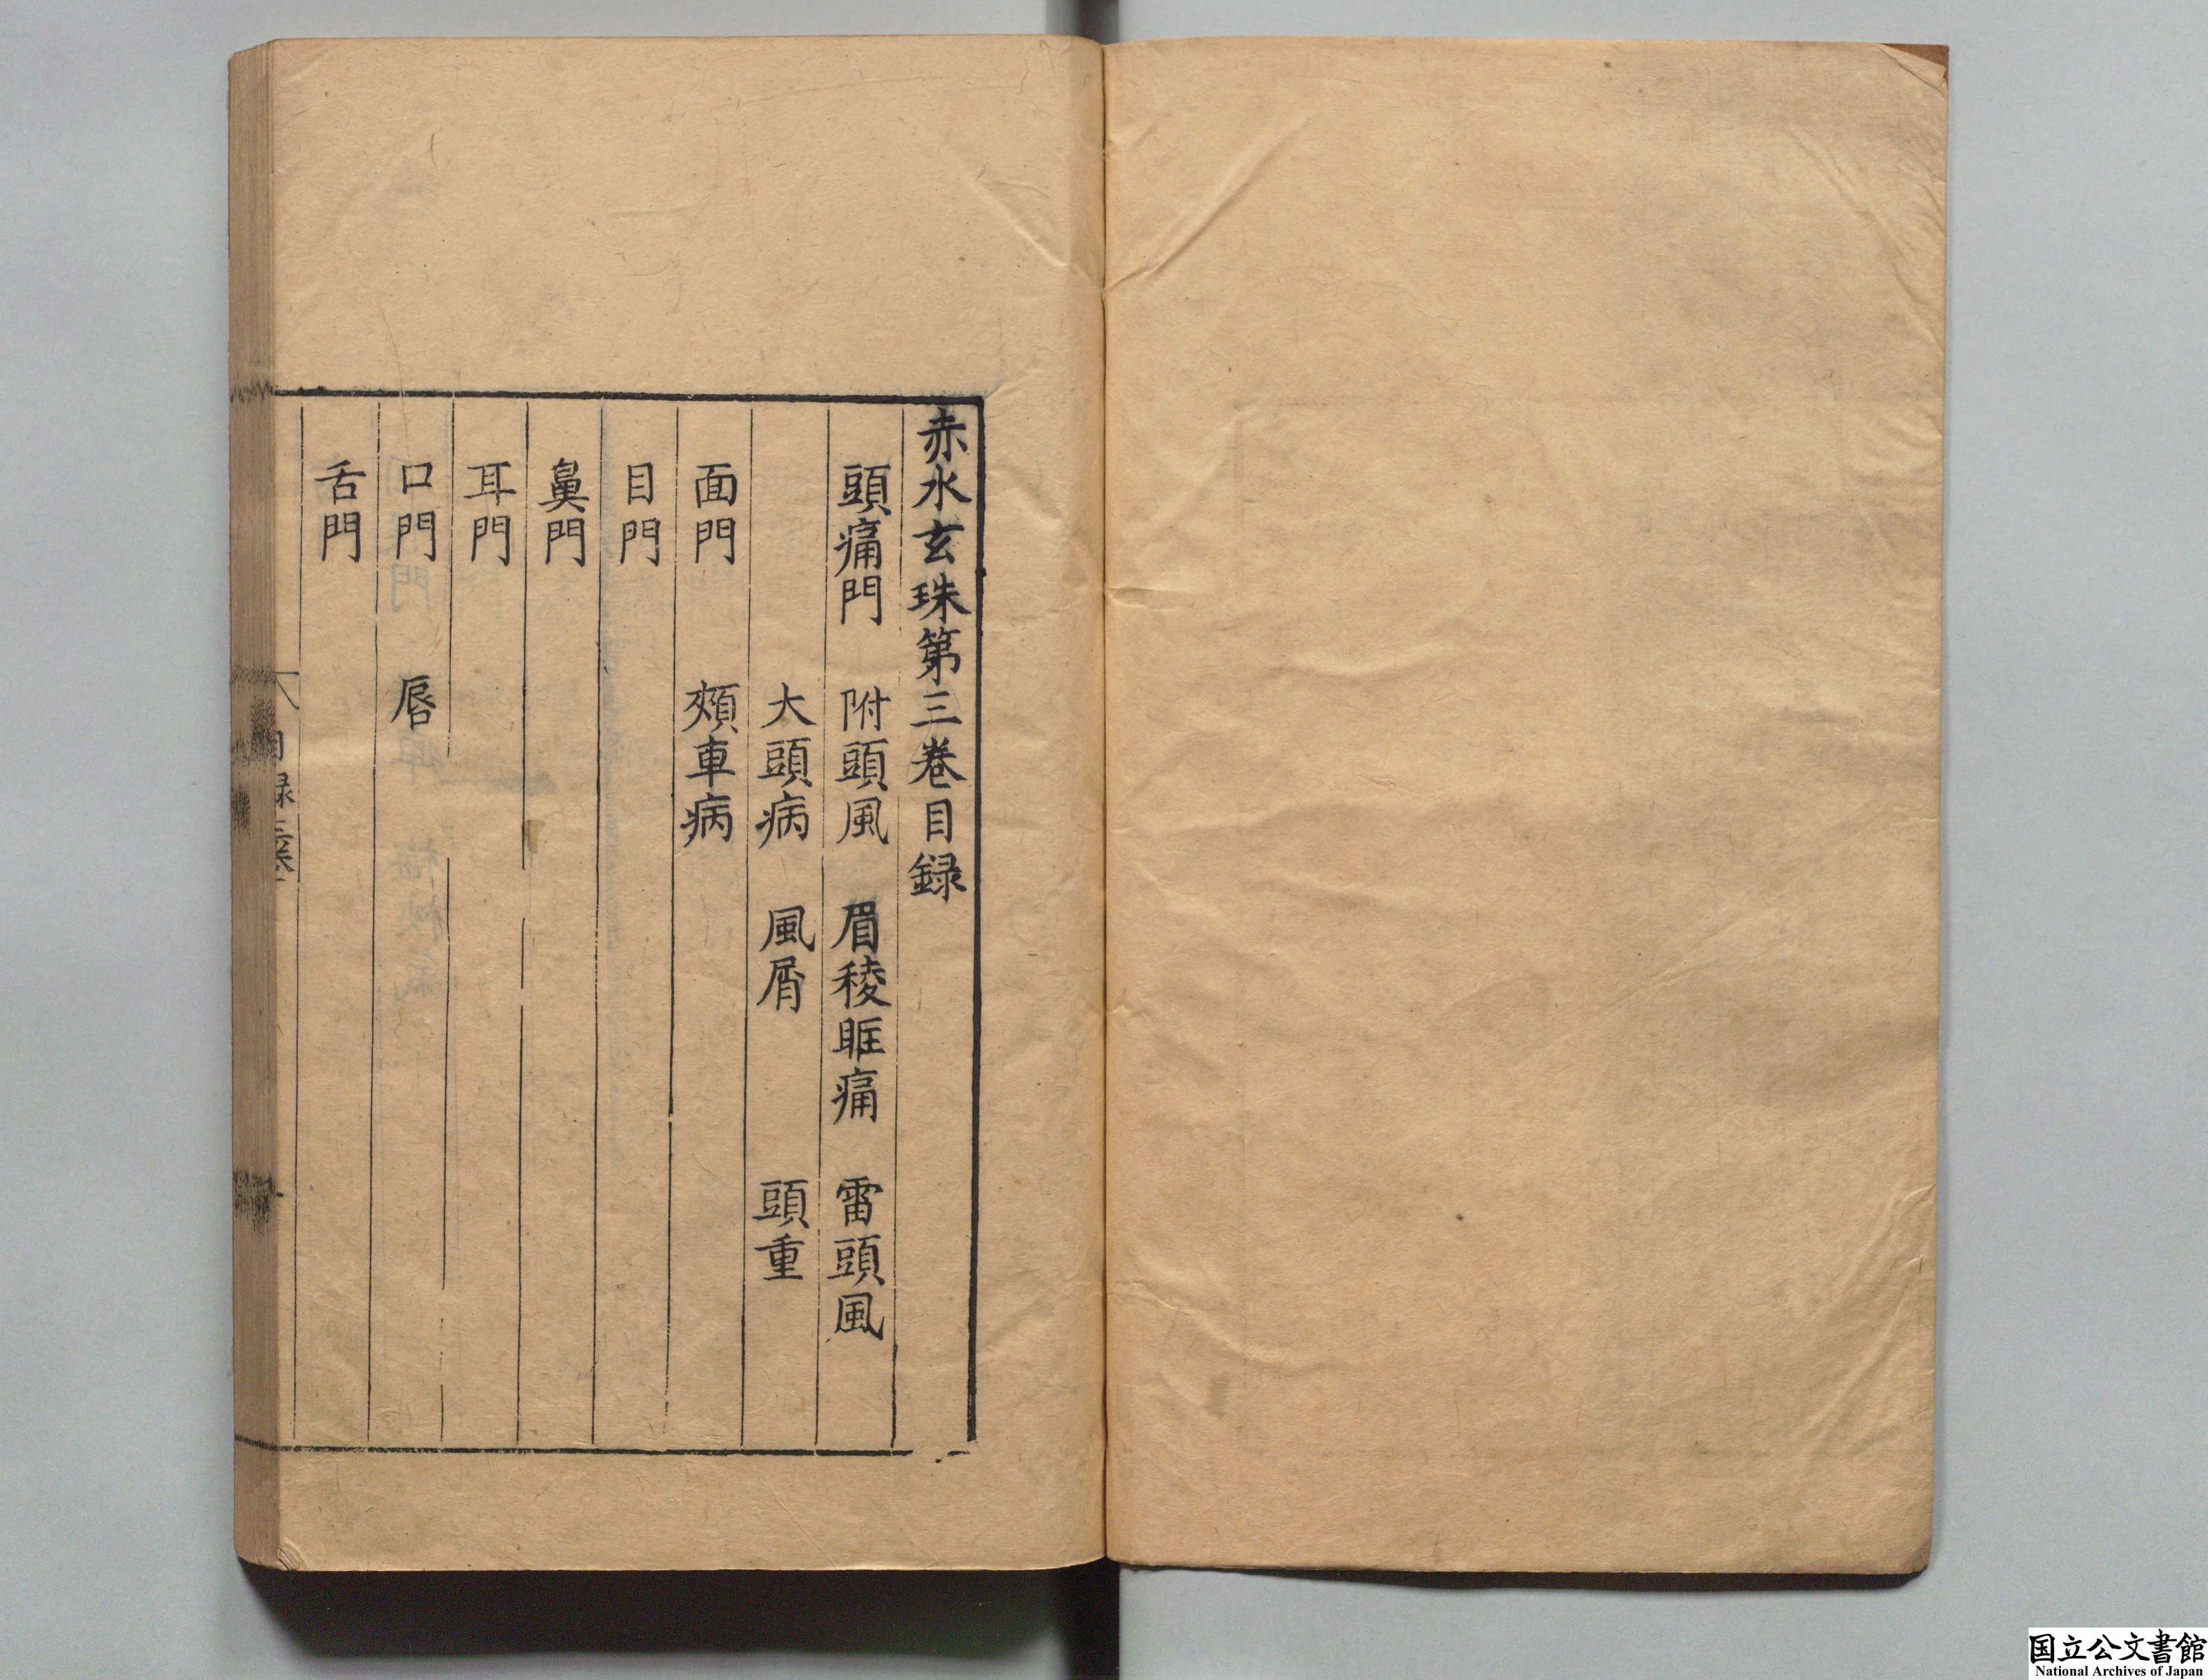 赤水玄珠第三卷目録
頭痛門 附頭風 眉稜眶痛 雷頭風
大頭病 風屑 頭重
面門 頰車病
目門
鼻門
耳門
口門 唇
舌門
目録
国立公文書館
National Archives of Japan